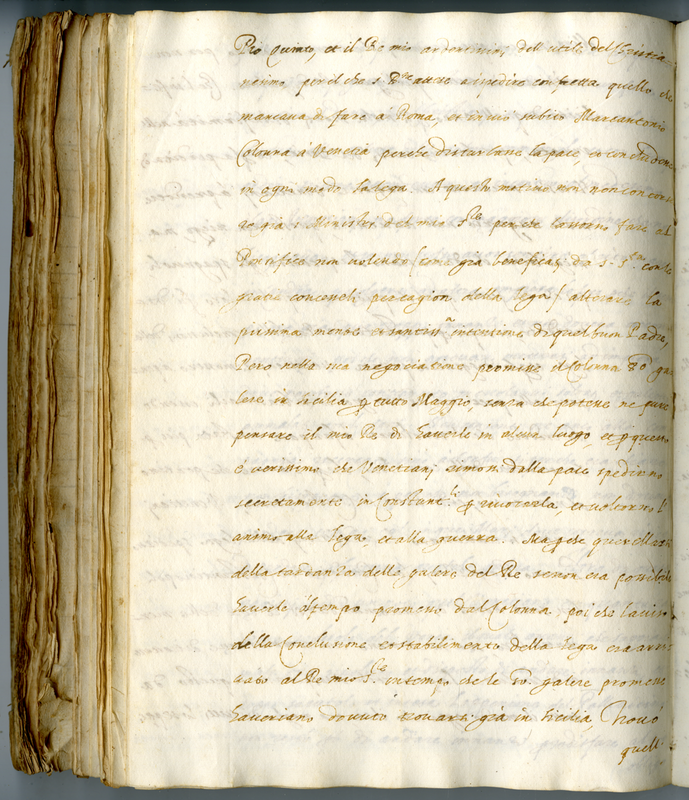 Pio Quinto, et il Re mio ardentiss.i dell'utile del Cristia=
nesimo, per il che S. B.ne attese a spedire con fretta quello che
mancava di fare à Roma, et inviò subito Marcantonio
Colonna à Venetia perche disturbasse la pace, et concludesse
in ogni modo la lega. A questo motivo non
già i Ministri del mio S.re perche lo fare al
Pontefice non volendo (come già beneficati da S. S.tà con le
gratie concesseli per cagion della lega) alterare la
purissima mente et santiss.a intentione di quel buon Padre,
Però nella sua negociatione promise il Colonna 80 ga
lere in Sicilia p tutto Maggio, senza che potesse ne pure
pensare il mio Re di haverle in alcun luogo, et p questo
è verissimo che Venetiani remossi dalla pace spedirno
secretamente in Constant.li p rivocerla, et voltorno l'
animo alla lega, et alla guerra. Ma p che querellarsi
della tardanza delle galere del Re se non era possibile
haverle al tempo promesso dal Colonna, poi che l'aviso
della Conclusione et stabilimento della lega era arri
vato al Re mio S.re in tempo che le 80 galere promesse
haveriano dovuto trovarsi già in Sicilia, Trovò
quell'